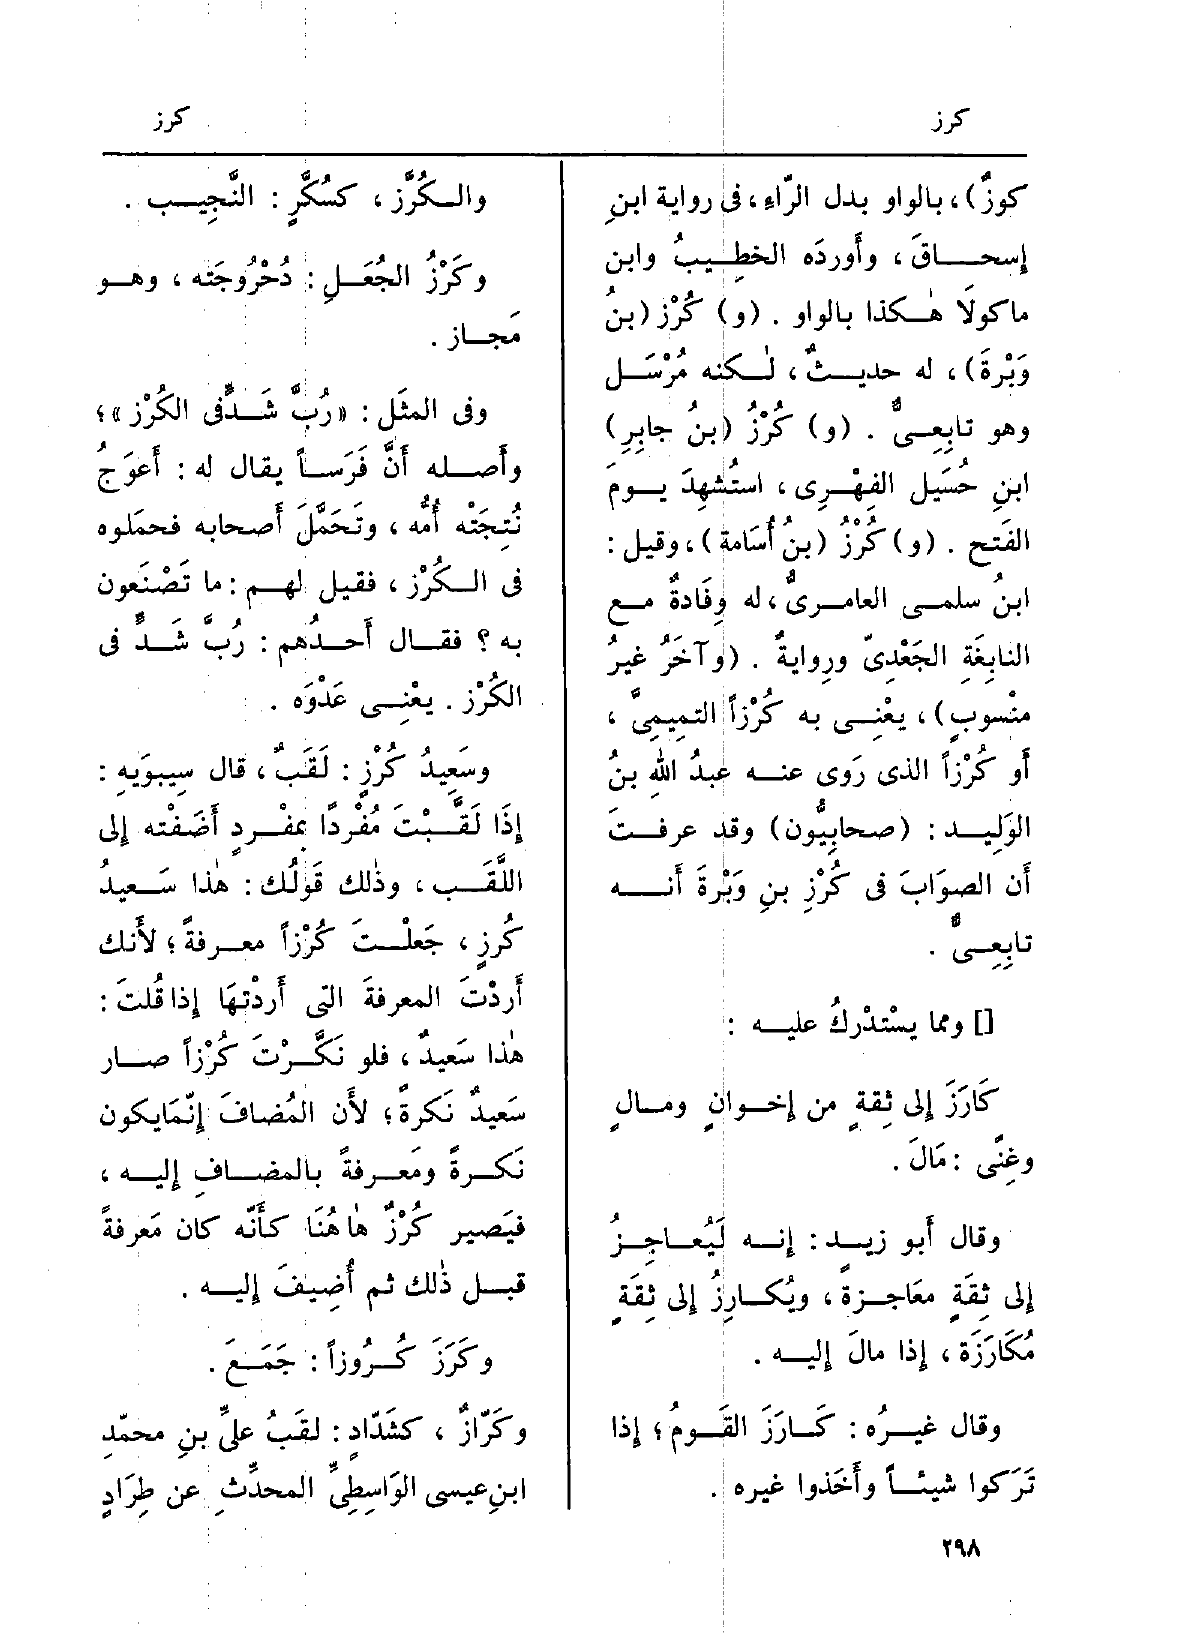 كرز
كرز
كوزٌ)، بالواو بدل الرّاءِ، فى رواية ابنِ
إسحـاقَ ، وأَوردَه الخطِـيبُ وابن
ماكولَا هٰـكذا بالواو . (و) كُرْز (بنُ
وَبْرةَ)، له حديـثٌ، لٰـكنه مُرْسَـل
وهو تابِعِـىٌّ . (و) كُرْزُ (بنُ جابِرِ)
ابنِ حُسَيل الفِهْـرِى ، استُشهِدَ يـومَ
الفَتح . (و) كُرْزُ (بنُ أُسَامة)، وقيل :
ابنُ سلمـى العامـرىُّ، له وِفَادةٌ مـع
النابِغَةِ الجَعْدِىّ وروايةٌ . (وآخَرُ غيرُ
منْسوبٍ) ، يعْنِـى به كُرْزاً التـمِيمِىَّ ،
أَو كُرْزاً الذى رَوى عنـه عبدُ اللهِ بنُ
الوَلِيـد : (صحابِيُّون) وقد عرفتَ
أَن الصوَابَ فى كُرْزِ بنِ وَبْرةَ أَنــه
تابِعِـىٌّ .
[] ومما يسْتدْركُ عليـه :
كَارَزَ إِلى ثِقةٍ من إِخـوانٍ ومـالٍ
وغِنًى : مَالَ .
وقال أَبو زيـد : إِنـه لَيُعـاجِـزُ
إِلى ثِقَةٍ معَاجـزةً ، ويُكـارِزُ إِلى ثِقَةٍ
مُكَارَزَة ، إِذا مالَ إِليـه .
وقال غيـرُه : كَـارَزَ القَـومُ ؛ إِذا
تَرَكوا شيئـاً وأَخَذوا غيره .
والـكُرَّز ، كسُكَّرٍ : النَّجِيـب .
وكُرْزُ الجُعَـلِ : دُحْرُوجَته ، وهـو
مَجـاز .
وفى المثَل : «رُبَّ شَـدٍّ فى الكُرْز» ؛
وأَصـله أَنَّ فَرَسـاً يقال له : أَعوَجُ
نُتِجَتْه أُمُّه ، وتَحَمَّلَ أَصحابه فحمَلوه
فى الـكُرْز ، فقيل لهـم : ما تَصْنَعون
به ؟ فقـال أَحـدُهم : رُبَّ شَـدٍّ فى
الكُرْز . يعْنِـى عَدْوَه .
وسَعِيدُ كُرْزٍ : لَقَبٌ ، قال سِيبوَيهِ :
إِذَا لَقَّـبْتَ مُفْردًا بمفْـردٍ أَضَفْته إِلى
اللَّقَـب ، وذٰلك قَولُك : هٰذا سَـعيدُ
كُرزٍ ، جَعلْـتَ كُرْزاً معـرفةً ؛ لأَنك
أَردْتَ المعرفةَ التى أَردْتهَا إِذا قُلتَ :
هٰذا سَعيدٌ ، فلو نَكَّـرْتَ كُرْزاً صـار
سَعيدٌ نَكرةً ؛ لأَن المُضافَ إِنّمَا يكون
نَكـرةً ومَعـرفةً بالمضـافِ إِليـه ،
فيَصير كُرْزٌ هٰا هُنَا كأَنّه كان مَعرفةً
قبـل ذٰلك ثم أُضِيفَ إِليـه .
وكَرَزَ كُـرُوزاً : جَمَـعَ .
وكَرّازٌ ، كشَدّادٍ : لقَبُ علىِّ بنِ محمّدِ
ابنِ عيسى الوَاسِطِىِّ المحدِّثِ عن طِرَادٍ
٢٩٨